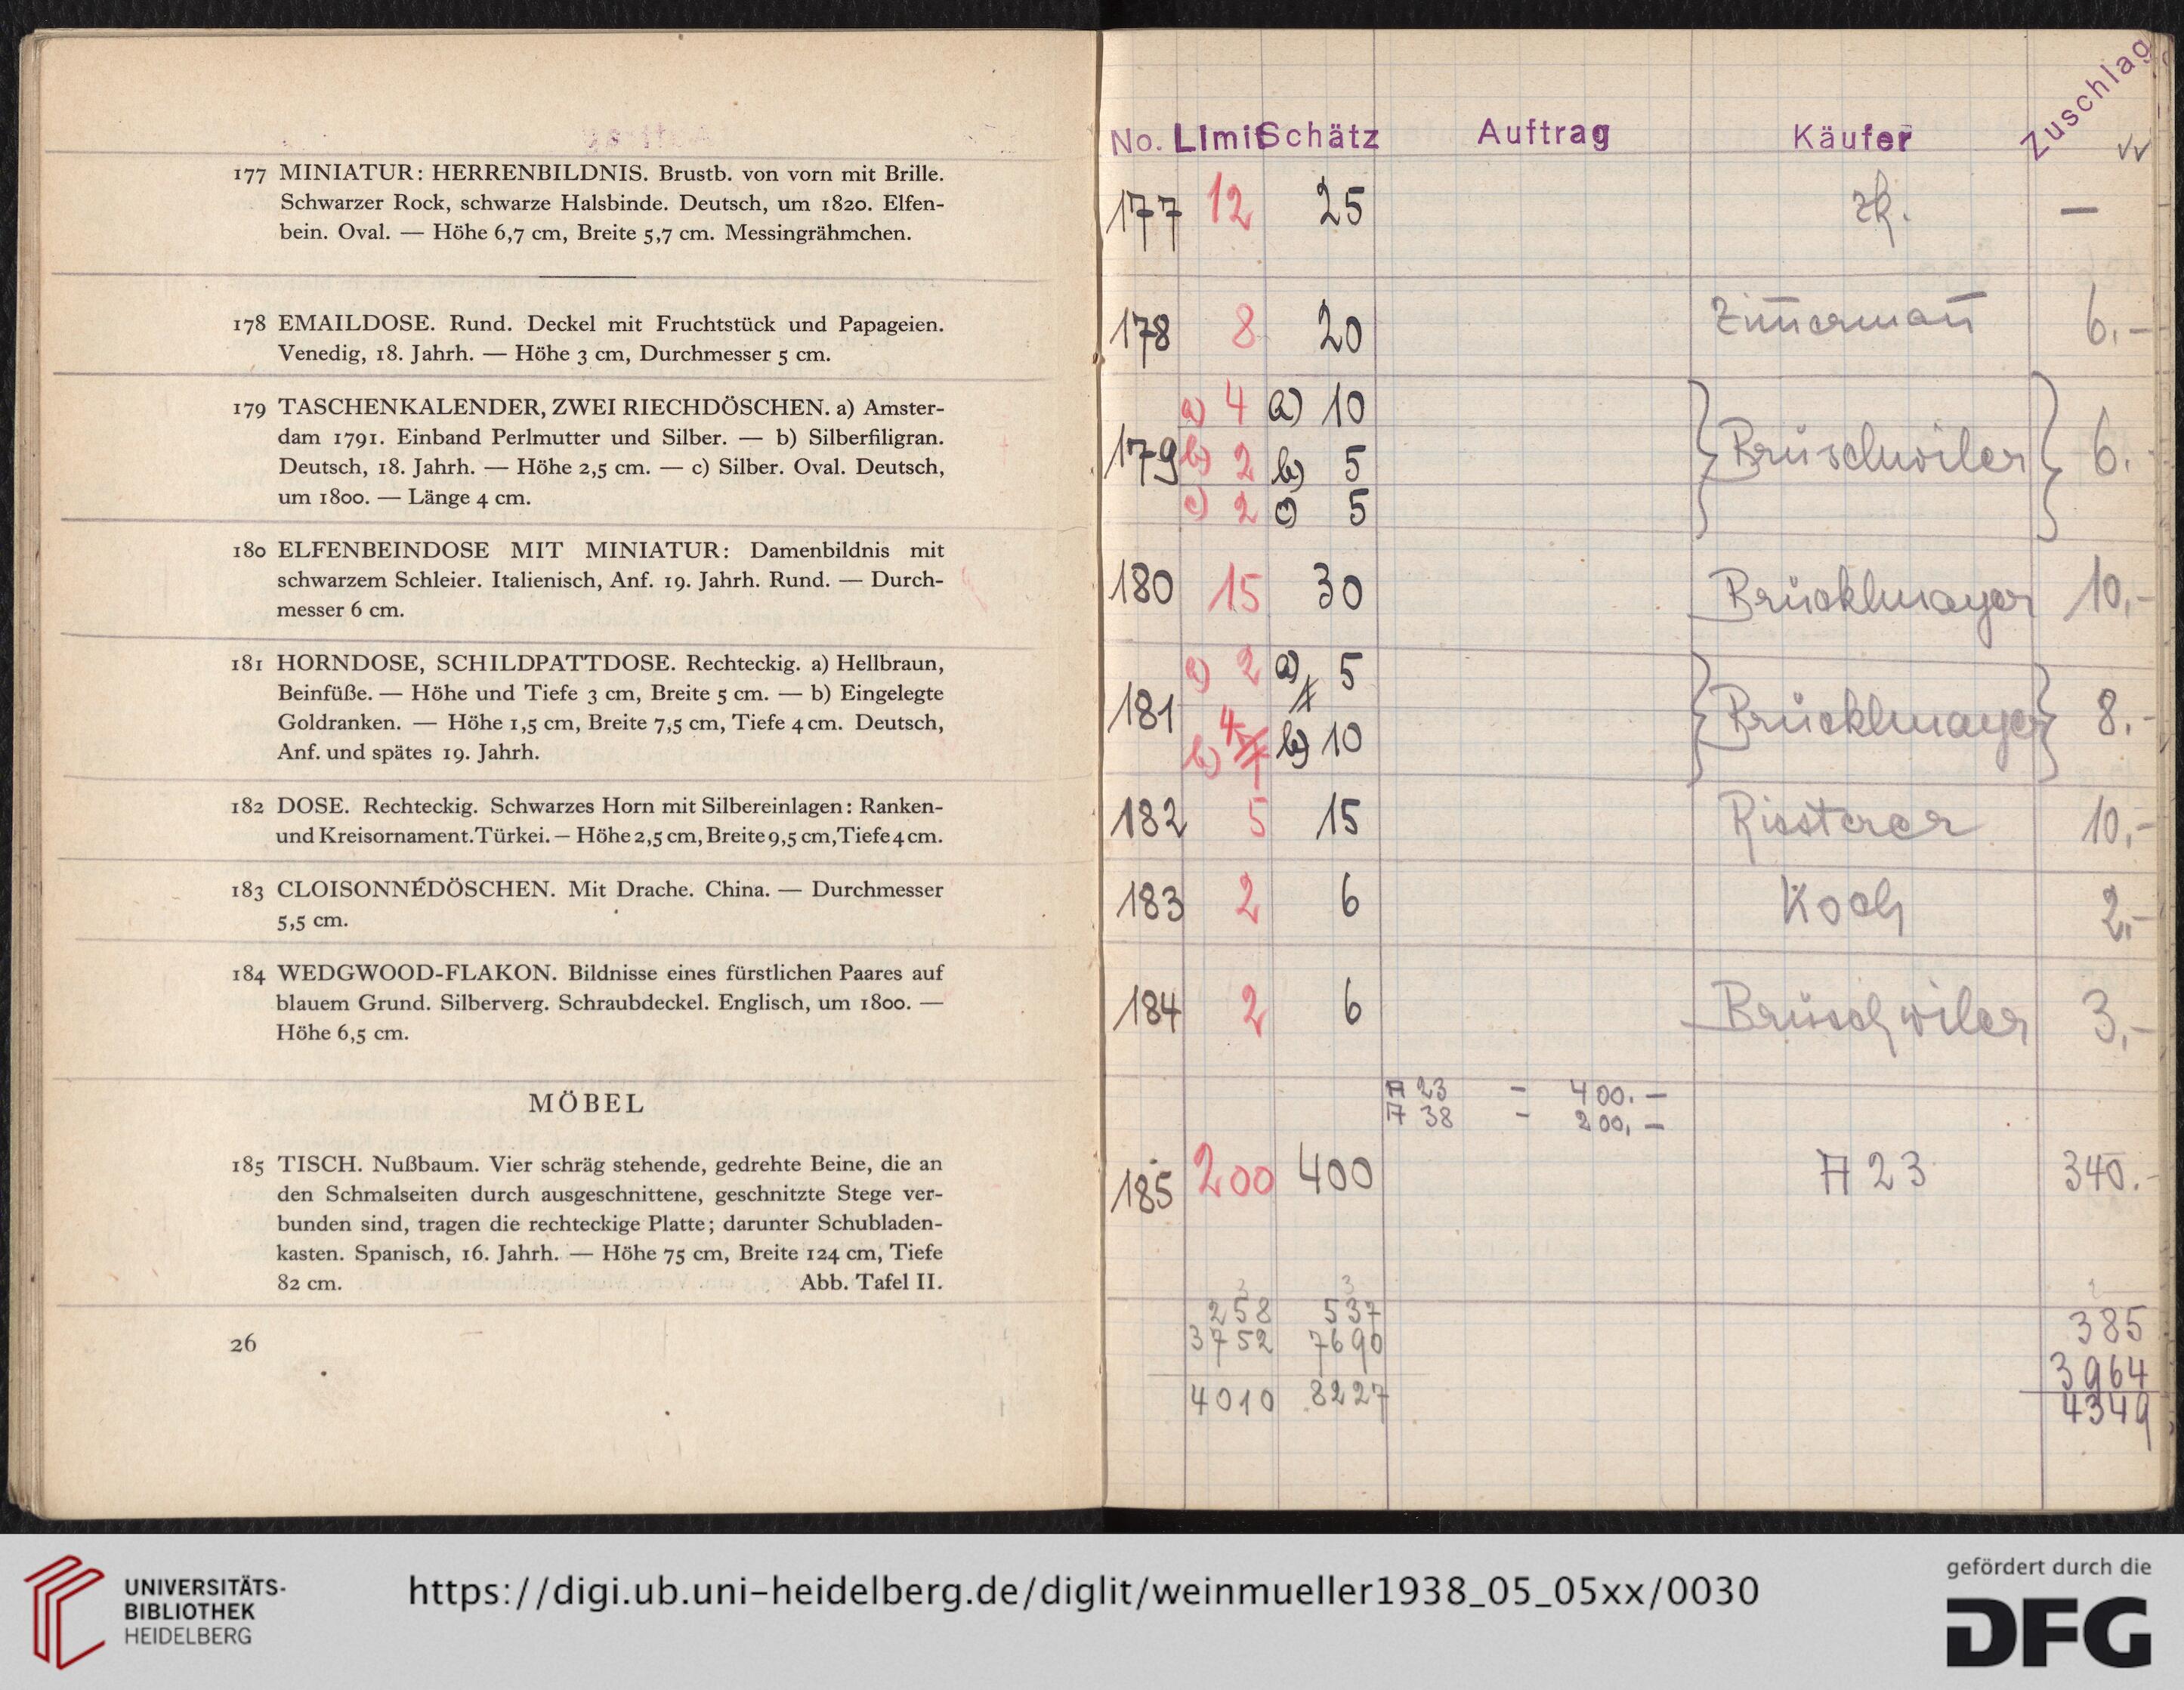 177 MINIATUR: HERRENBILDNIS. Brustb. von vorn mit Brille.
Schwarzer Rock, schwarze Halsbinde. Deutsch, um 1820. Elfen-
bein. Oval. — Höhe 6,7 cm, Breite 5,7 cm. Messingrähmchen.
178 EMAILDOSE. Rund. Deckel mit Fruchtstück und Papageien.
Venedig, 18. Jahrh. — Höhe 3 cm, Durchmesser 5 cm.
179 TASCHENKALENDER, ZWEI RIECHDÖSCHEN. a) Amster-
dam 1791. Einband Perlmutter und Silber. — b) Silberfiligran.
Deutsch, 18. Jahrh. — Höhe 2,5 cm. — c) Silber. Oval. Deutsch,
um 1800. — Länge 4 cm.
180 ELFENBEINDOSE MIT MINIATUR: Damenbildnis mit
schwarzem Schleier. Italienisch, Anf. 19. Jahrh. Rund. — Durch-
messer 6 cm.
181 HORNDOSE, SCHILDPATTDOSE. Rechteckig. a) Hellbraun,
Beinfüße. — Höhe und Tiefe 3 cm, Breite 5 cm. — b) Eingelegte
Goldranken. — Höhe 1,5 cm, Breite 7,5 cm, Tiefe 4 cm. Deutsch,
Anf. und spätes 19. Jahrh.
182 DOSE. Rechteckig. Schwarzes Horn mit Silbereinlagen: Ranken-
und Kreisornament. Türkei. — Höhe 2,5 cm, Breite 9,5 cm, Tiefe 4 cm.
183 CLOISONNÉDÖSCHEN. Mit Drache. China. — Durchmesser
5,5 cm.
184 WEDGWOOD-FLAKON. Bildnisse eines fürstlichen Paares auf
blauem Grund. Silberverg. Schraubdeckel. Englisch, um 1800. —
Höhe 6,5 cm.
MÖBEL
185 TISCH. Nußbaum. Vier schräg stehende, gedrehte Beine, die an
den Schmalseiten durch ausgeschnittene, geschnitzte Stege ver-
bunden sind, tragen die rechteckige Platte; darunter Schubladen-
kasten. Spanisch, 16. Jahrh. — Höhe 75 cm, Breite 124 cm, Tiefe
82 cm. Abb. Tafel II.
26
No. Limit Schätz Auftrag Käufer Zuschlag
177 12 25 —
178 8 20 Zimmermann 6.-
a) 4 a) 10
179 b) 2 b) 5 Brüschwiler 6.-
c) 2 c) 5
180 15 30 Brücklmayer 10,-
a) 2 a) 5
181 Brücklmayer 8.-
b) 4 b) 10
182 5 15 Rissterer 10,-
183 2 6 Koch 2,-
184 2 6 Brüschwiler 3,-
A 23 - 400.-
A 38 - 200,-
185 200 400 A 23 340.-
258 537 385
3752 7690 3964
4010 8227 4349
UNIVERSITÄTS-
BIBLIOTHEK
HEIDELBERG
https://digi.ub.uni-heidelberg.de/diglit/weinmueller1938_05_05xx/0030
gefördert durch die
DFG